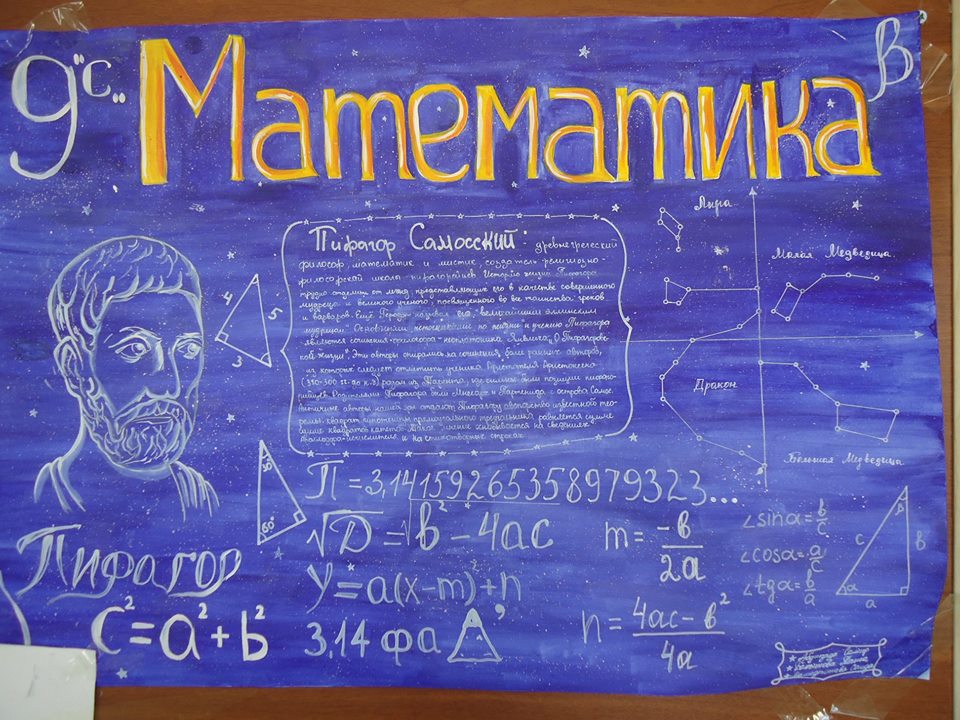 9 "С" Математика В
Пифагор Самосский: древнегреческий
философ, математик и мистик, создатель религиозно-
философской школы пифагорейцев. Историю жизни Пифагора
трудно отделить от легенд, представляющих его в качестве совершенного
мудреца и великого учёного, посвящённого во все таинства греков
и варваров. Ещё Геродот называл его "величайшим эллинским
мудрецом". Основными источниками по жизни и учению Пифагора
являются сочинения философа-неоплатоника Ямвлиха "О Пифагоровой
жизни". Эти авторы опирались на сочинения более ранних авторов,
из которых следует отметить ученика Аристотеля Аристоксена
(350-300 гг. до н.э) родом из Тарента, где сильны были позиции пифаго-
рейцев. Родителями Пифагора были Мнесарх и Партенида с острова Самос.
Античные авторы нашей эры отдают Пифагору авторство известной тео-
ремы: квадрат гипотенузы прямоугольного треугольника равняется сумме
квадратов катетов. Такое мнение основывается на сведениях
Аполлодора-исчислителя и на стихотворных строках
Лира
Малая Медведица
Дракон
Большая Медведица
4
5
3
30°
60°
П = 3,14159265358979323...
√D = √b² - 4ac
m = -в/2a
y = a(x-m)²+n
3,14 фа Д’
n = 4ac-в²/4a
∠sinα = b/c
∠cosα = a/c
∠tgα = b/a
c
b
a
α
β
Пифагор
C² = a² + b²